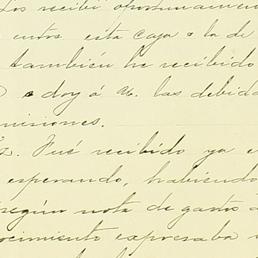 los recibí oportunamente
entos esta caja o la de
también he recibido
doy á U. las debida
misiones.
Fué recibido ya e
esperando, habiendo
según nota de gasto
ocimiento expresaba